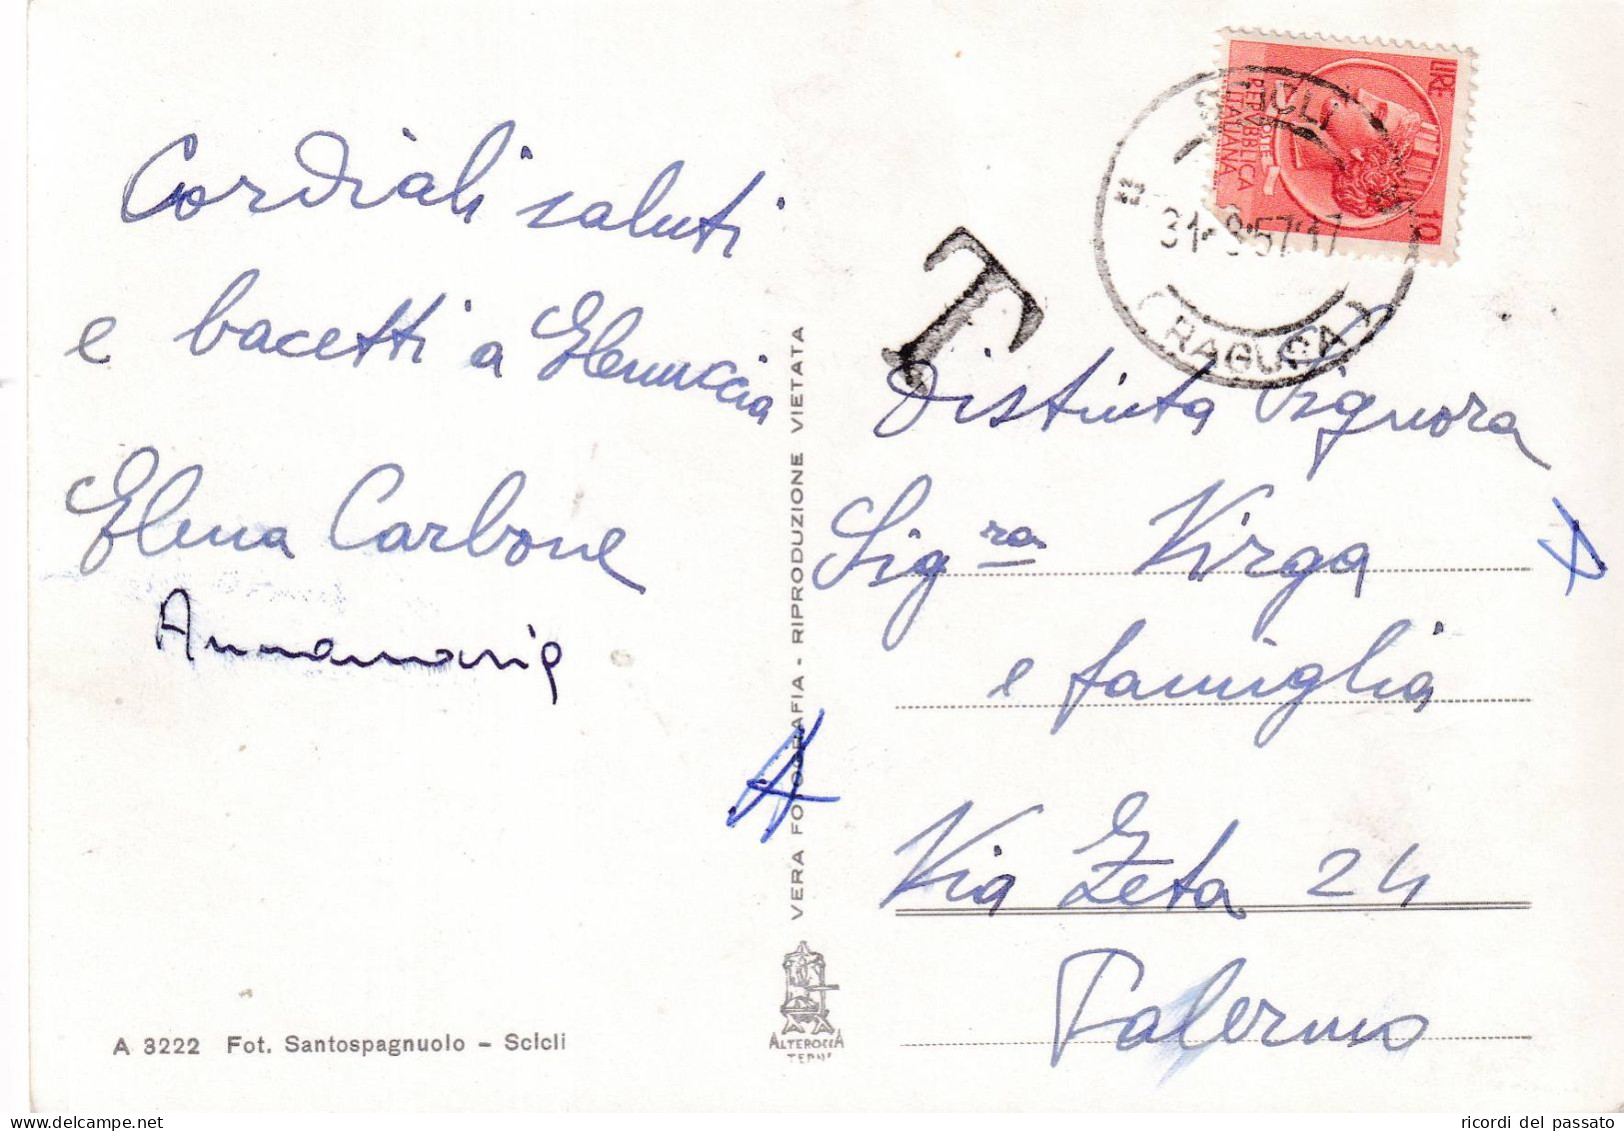 Cordiali saluti
e bacetti a Elenuccia
Elena Carbone
Annamaria
A 3222 Fot. Santospagnuolo - Scicli
VERA FOTOGRAFIA - RIPRODUZIONE VIETATA
ALTEROCCA
TERNI
LIRE 10
POSTE
REPVBBLICA
ITALIANA
SCICLI
31-8-57-17
(RAGUSA)
T
Distinta Signora
Sig.ra Virga
e famiglia
Via Zeta 24
Palermo
ricordi del passato